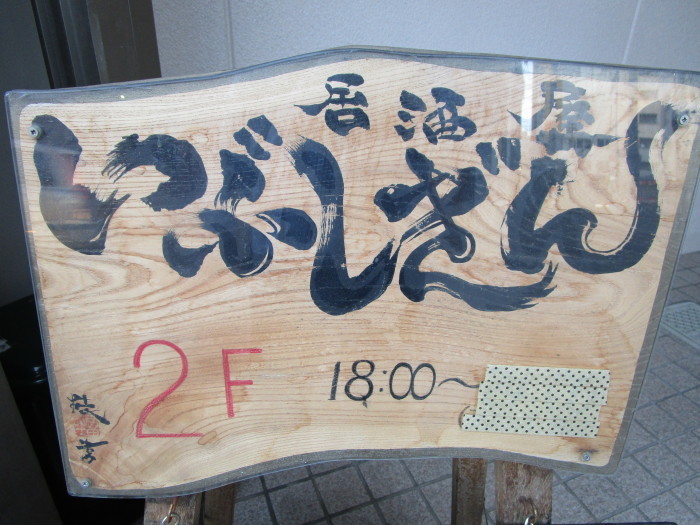 居酒屋
いぶしぎん
2F
18:00～